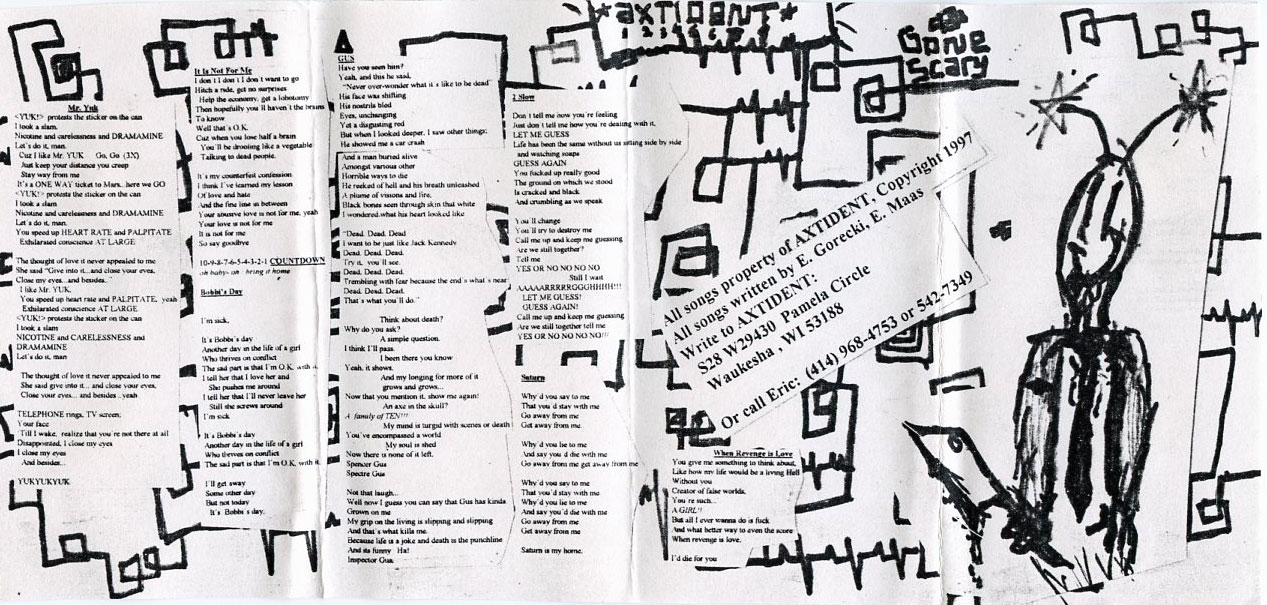 Mr. Yuk
<YUK!> protests the sticker on the can
I took a slam.
Nicotine and carelessness and DRAMAMINE
Let's do it, man.
Cuz I like Mr. YUK Go, Go (3X)
Just keep your distance you creep
Stay way from me
It's a ONE WAY ticket to Mars...here we GO
<YUK!> protests the sticker on the can
I took a slam
Nicotine and carelessness and DRAMAMINE
Let's do it, man.
You speed up HEART RATE and PALPITATE
Exhilarated conscience AT LARGE
The thought of love it never appealed to me
She said "Give into it...and close your eyes.
Close my eyes...and besides.."
I like Mr. YUK.
You speed up heart rate and PALPITATE, yeah
Exhilarated conscience AT LARGE
<YUK!> protests the sticker on the can
I took a slam
NICOTINE and CARELESSNESS and
DRAMAMINE
Let's do it, man
The thought of love it never appealed to me
She said give into it... and close your eyes,
Close your eyes... and besides ..yeah
TELEPHONE rings, TV screen;
Your face
'Till I wake, realize that you're not there at all
Disappointed, I close my eyes
I close my eyes
And besides...
YUKYUKYUK
It Is Not For Me
I don't I don't I don't want to go
Hitch a ride, get no surprises
Help the economy, get a lobotomy
Then hopefully you'll haven't the brains
To know
Well that's O.K.
Cuz when you lose half a brain
You'll be drooling like a vegetable
Talking to dead people.
It's my counterfeit confession
I think I've learned my lesson
Of love and hate
And the fine line in between
Your abusive love is not for me, yeah
Your love is not for me
It is not for me
So say goodbye
10-9-8-7-6-5-4-3-2-1 COUNTDOWN
oh baby- oh bring it home
Bobbi's Day
I'm sick.
It's Bobbi's day
Another day in the life of a girl
Who thrives on conflict
The sad part is that I'm O.K. with it.
I tell her that I love her and
She pushes me around
I tell her that I'll never leave her
Still she screws around
I'm sick
It's Bobbi's day
Another day in the life of a girl
Who thrives on conflict
The sad part is that I'm O.K. with it.
I'll get away
Some other day
But not today
It's Bobbi's day.
GUS
Have you seen him?
Yeah, and this he said,
"Never over-wonder what it's like to be dead"
His face was shifting
His nostrils bled
Eyes, unchanging
Yet a disgusting red
But when I looked deeper, I saw other things;
He showed me a car crash
And a man buried alive
Amongst various other
Horrible ways to die
He reeked of hell and his breath unleashed
A plume of visions and fire,
Black bones seen through skin that white
I wondered what his heart looked like
"Dead. Dead. Dead
I want to be just like Jack Kennedy
Dead. Dead. Dead.
Try it, you'll see.
Dead. Dead. Dead.
Trembling with fear because the end's what's near
Dead. Dead. Dead.
That's what you'll do."
Think about death?
Why do you ask?
A simple question.
I think I'll pass.
I been there you know
Yeah, it shows.
And my longing for more of it
grows and grows...
Now that you mention it, show me again!
An axe in the skull?
A family of TEN!!!
My mind is turgid with scenes or death
You've encompassed a world
My soul is shed
Now there is none of it left.
Spencer Gus
Spectre Gus
Not that laugh...
Well now I guess you can say that Gus has kinda
Grown on me
My grip on the living is slipping and slipping
And that's what kills me.
Because life is a joke and death is the punchline
And its funny Ha!
Inspector Gus.
2 Slow
Don't tell me how you're feeling
Just don't tell me how you're dealing with it.
LET ME GUESS
Life has been the same without us sitting side by side
and watching soaps
GUESS AGAIN
You fucked up really good
The ground on which we stood
Is cracked and black
And crumbling as we speak
You'll change
You'll try to destroy me
Call me up and keep me guessing
Are we still together?
Tell me
YES OR NO NO NO NO
Still I wait
AAAAARRRRRGGGHHHH!!!
LET ME GUESS!
GUESS AGAIN!
Call me up and keep me guessing
Are we still together tell me
YES OR NO NO NO NO!!!
Saturn
Why'd you say to me
That you'd stay with me
Go away from me
Get away from me.
Why'd you lie to me
And say you'd die with me
Go away from me get away from me
Why'd you say to me
That you'd stay with me
Why'd you lie to me
And say you'd die with me
Go away from me
Get away from me
Saturn is my home.
*AXTIDENT*
All songs property of AXTIDENT, Copyright 1997
All songs written by E. Gorecki, E. Maas
Write to AXTIDENT:
S28 W29430 Pamela Circle
Waukesha , WI 53188
Or call Eric: (414) 968-4753 or 542-7349
When Revenge is Love
You give me something to think about,
Like how my life would be a living Hell
Without you
Creator of false worlds.
You're such...
A GIRL!!
But all I ever wanna do is fuck
And what better way to even the score
When revenge is love.
I'd die for you
Gone
Scary